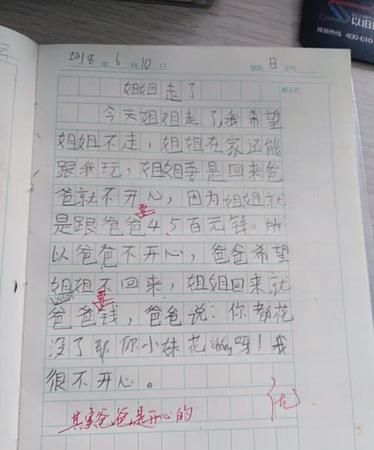 2018年6月10日 星期日 天气
姐姐走了
今天姐姐走了,我希望
姐姐不走,姐姐在家还能
跟我玩,姐姐要是回来爸
爸就不开心,因为姐姐就
要
是跟爸爸4,5百元钱。所
以爸爸不开心,爸爸希望
姐姐不回来,姐姐回来就
要
爸爸钱,爸爸说:你都花
没了那你小妹花shóng呀!我
很不开心。
其实爸爸是开心的
优
以旧
400-610-